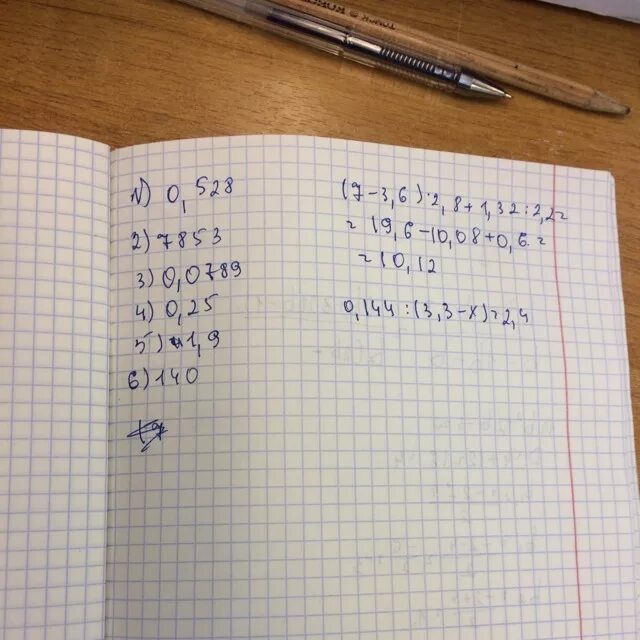 1) 0,528
2) 7853
3) 0,0789
4) 0,25
5) 1,9
6) 140
(7-3,6)·2,8+1,32:2,2=
= 19,6-10,08+0,6 =
= 10,12
0,144:(3,3-x)=2,4